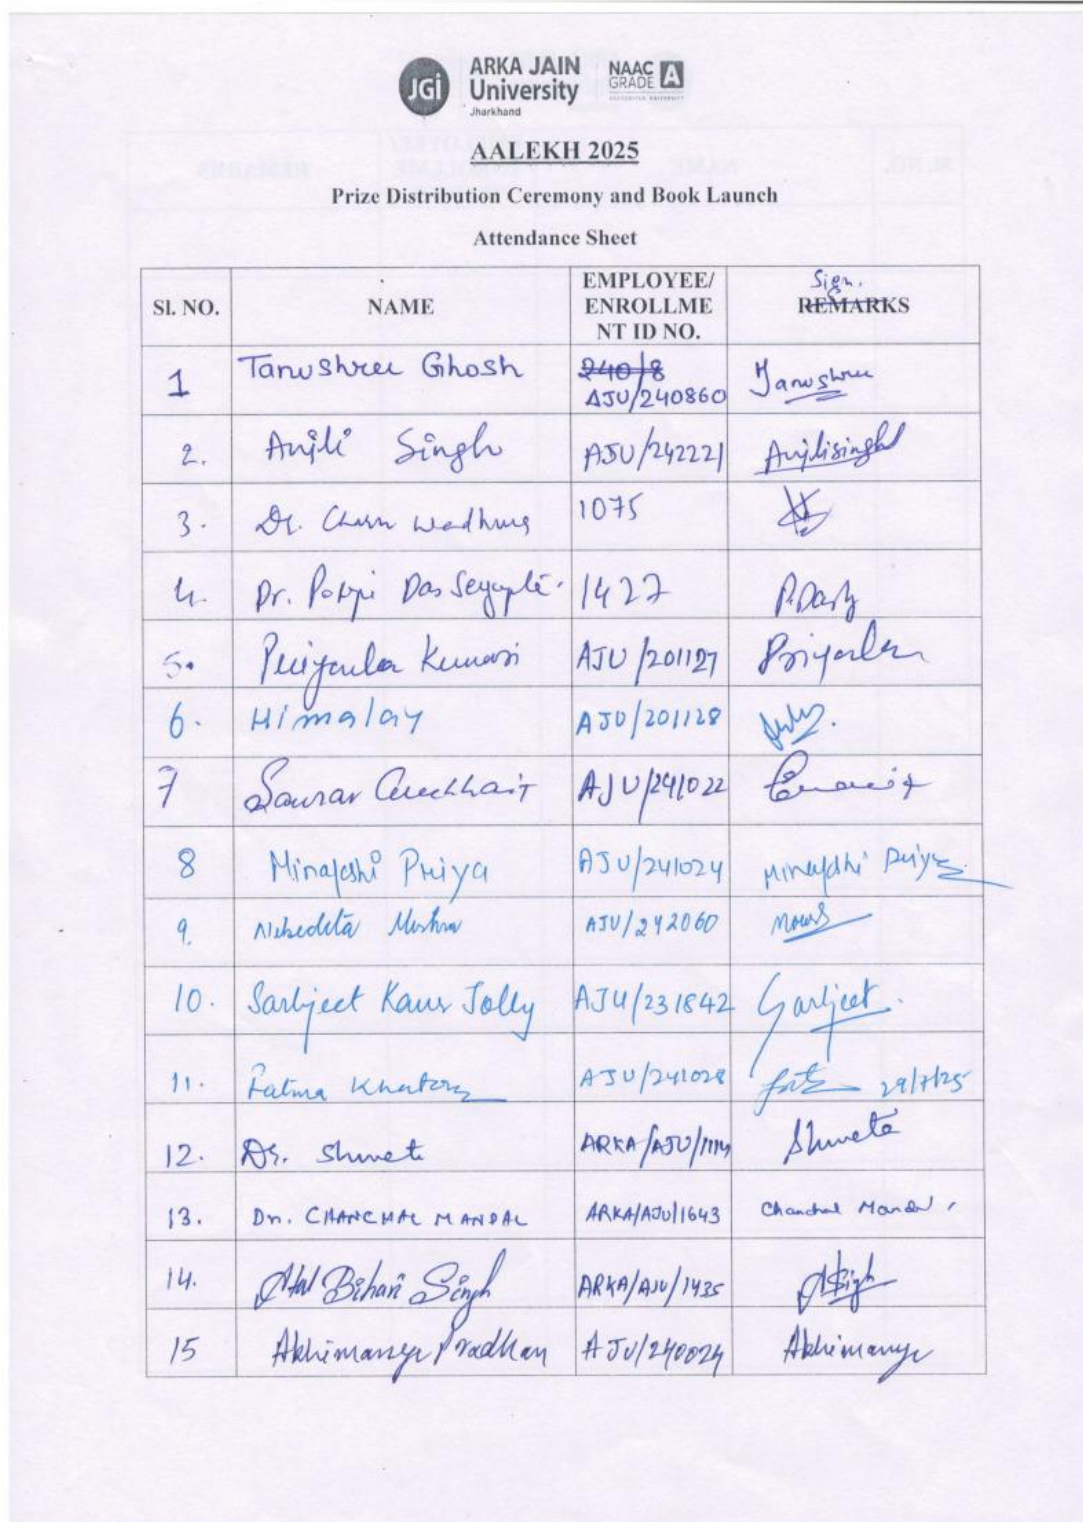 JGi
ARKA JAIN
University
Jharkhand
NAAC
GRADE A
ACCREDITED UNIVERSITY
AALEKH 2025
Prize Distribution Ceremony and Book Launch
Attendance Sheet
Sl. NO. NAME EMPLOYEE/ ENROLLME NT ID NO. Sign. REMARKS
1 Tanushree Ghosh 240/8 AJU/240860 Tanushree
2. Anjli Singh AJU/242221 Anjlisingh
3. Dr. Charu Wadhwa 1075
4. Dr. Poppi Das Sengupta 1427 P.Das
5. Priyanka Kumari AJU/201127 Priyanka
6. Himalay AJU/201128
7 Saurav AJU/241022
8 Minakshi Priya AJU/241024 Minakshi Priya
9. Nibedita Mishra AJU/242060
10. Sarbjeet Kaur Jolly AJU/231842 Sarbjeet
11. Fatma Khatoon AJU/241028 29/7/25
12. Dr. Shweta ARKA/AJU/ Shweta
13. Dr. CHANCHAL MANDAL ARKA/AJU/1643 Chanchal Mandal
14. Atal Bihari Singh ARKA/AJU/1435 ASigh
15 Abhimanyu Pradhan AJU/240024 Abhimanyu